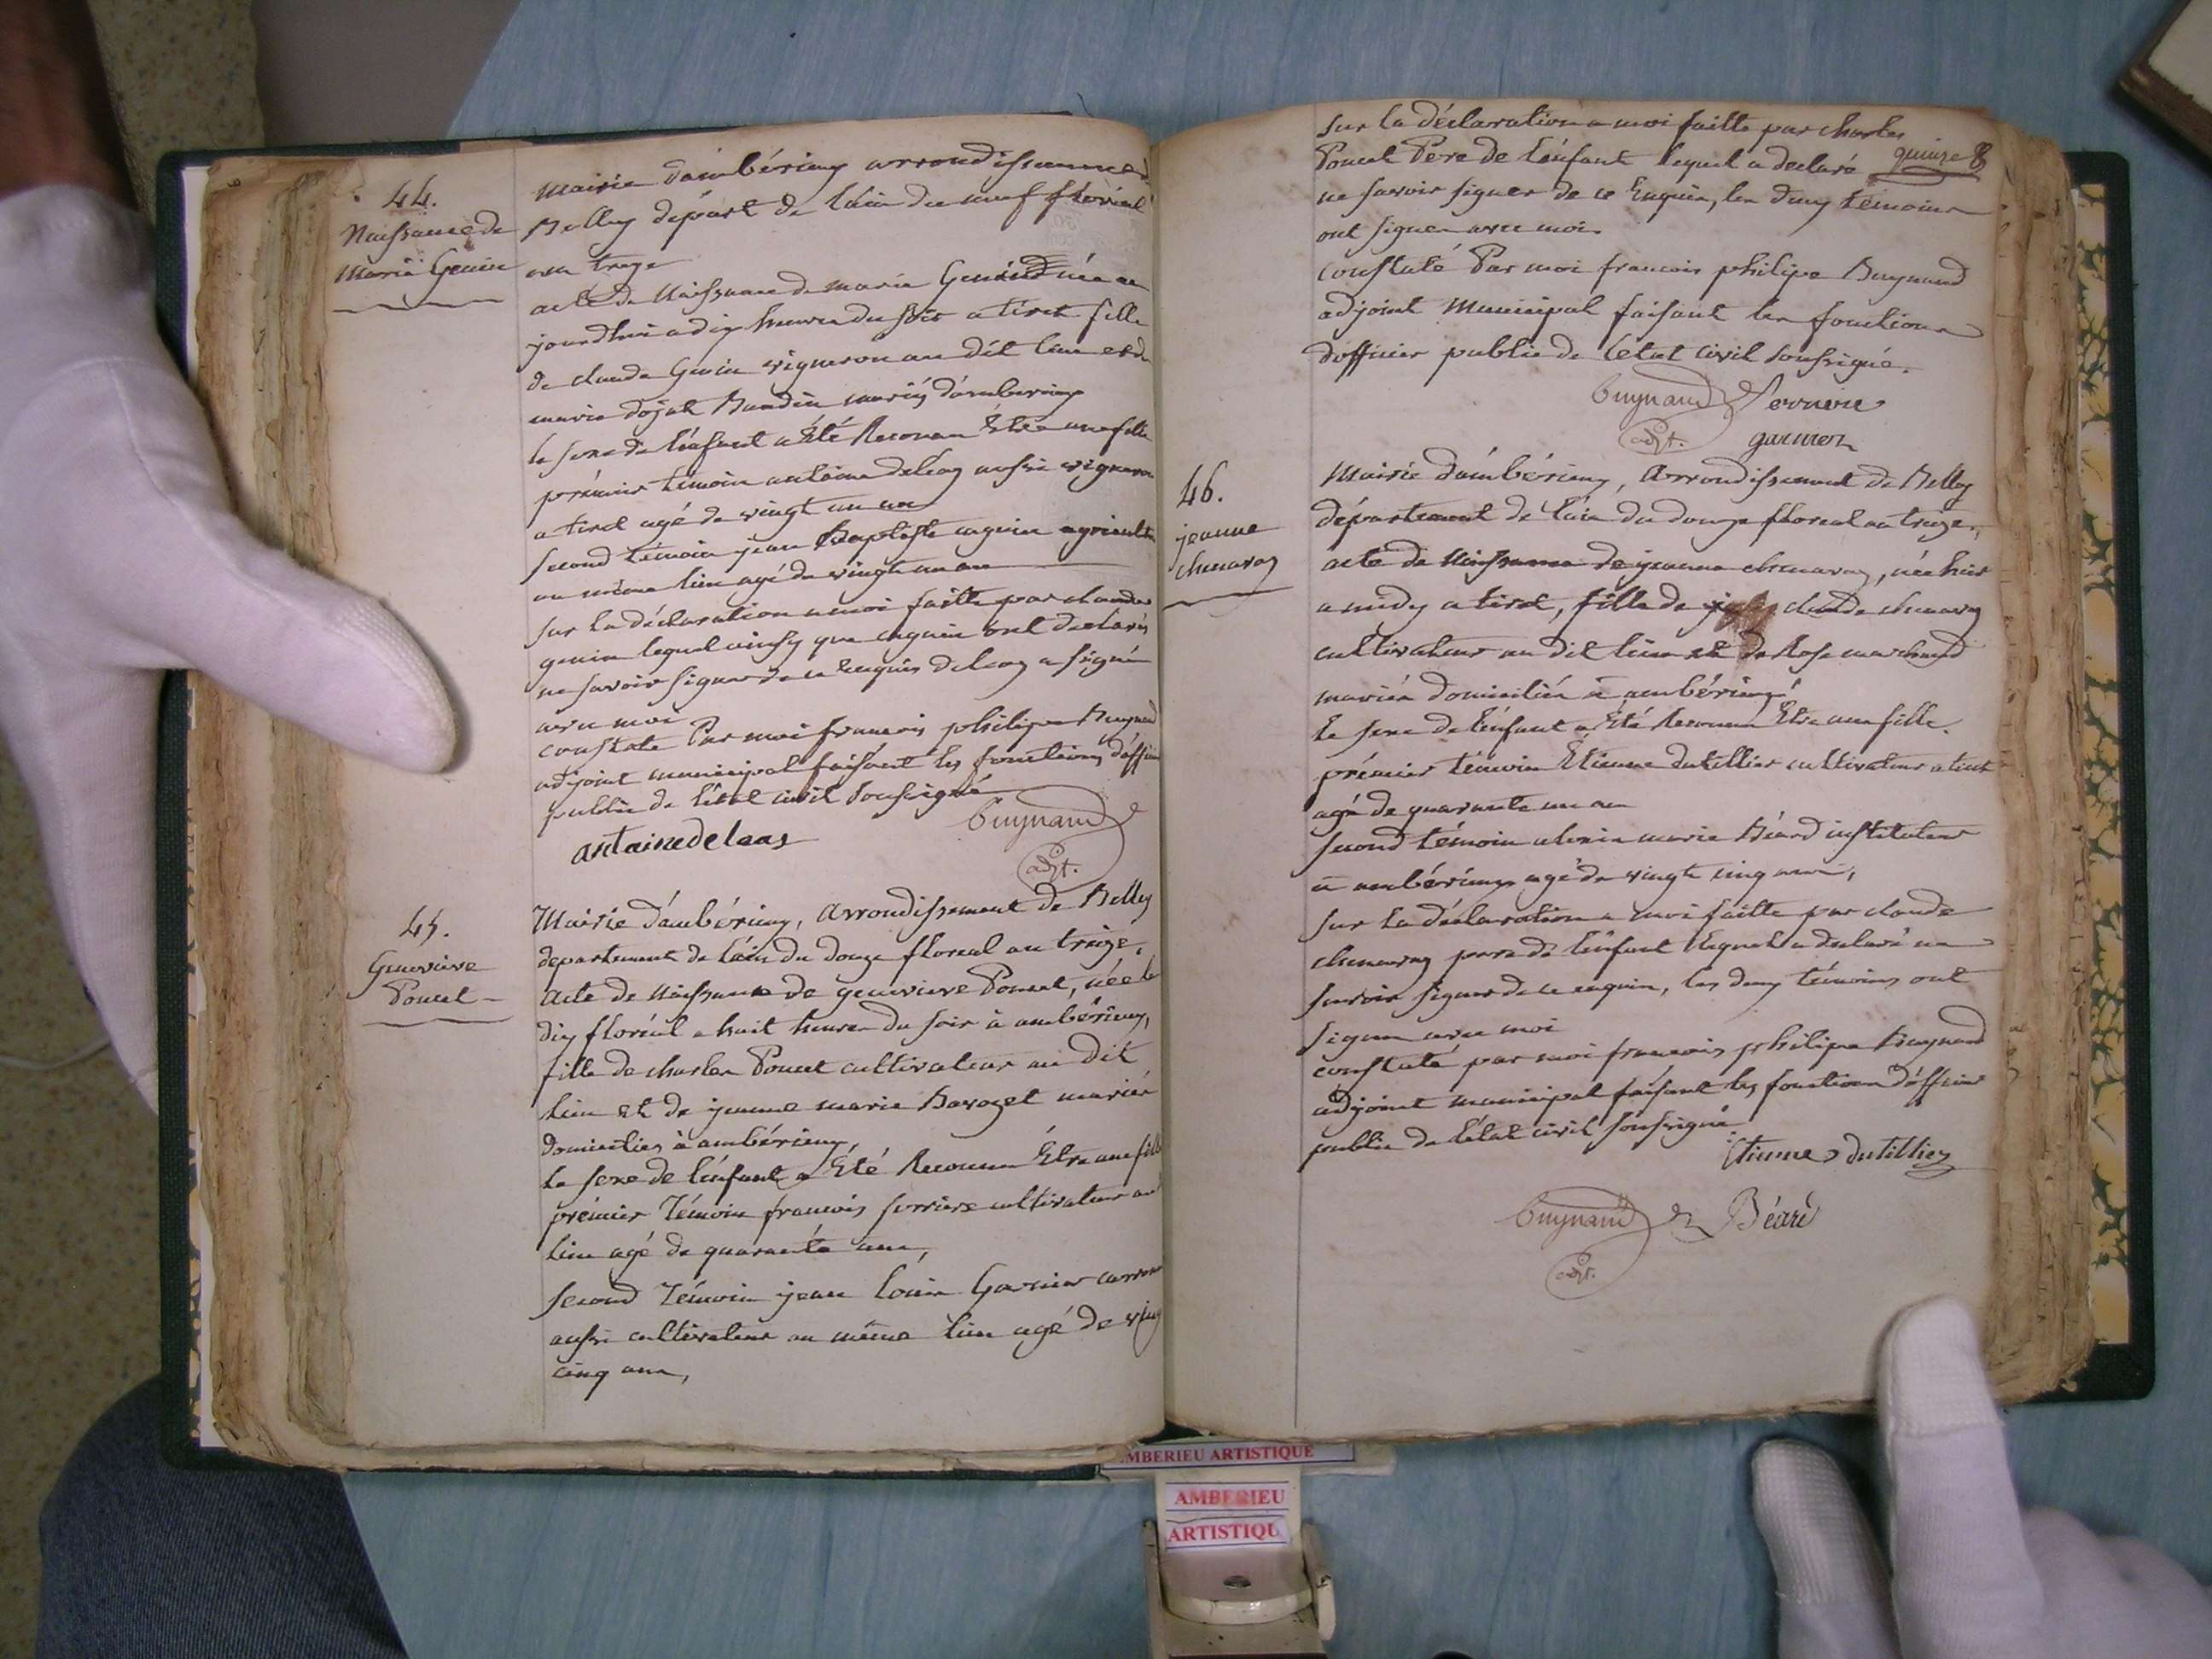 44.
Naissance de
Marie Genin
Mairie d'ambérieux arrondissement
Belley depart de lain du neuf floréal
an treze
acte de Naissance de marie Genin née au
jourdhui a dix heures du soir a tiret fille
de claude Genin vigneron au dit lieu et de
marie dojat Baudin mariés d'amberieux
le sexe de l'enfant a Été Reconnu Etre une fille
prémier témoin antoine delaas aussi vigneron
a tiret agé de vingt un ans
second témoin jean Baptiste cagnin agriculte
au même lieu agé de vingt un an
sur la déclaration a moi faitte par claude
genin lequel ainsy que cagnin ont declarés
ne savoir signer de ce enquis delaas a signé
avec moi
constate Par moi francois philipe Buynand
adjoint municipal faisant les fonctions d'offici
public de l'état civil soussigné
Buynand
antoine delaas
adjt.
45.
Genevieve
Poncet
Mairie d'ambérieux, Arrondissement de Belley
departement de l'ain du douze floreal an treize,
acte de Naissance de genevieve Poncet, née le
dix floréal a huit heures du soir à ambérieux,
fille de charles Poncet cultivateur au dit
lieu et de jeanne marie Bavozet mariés
domiciliés à ambérieux,
le sexe de l'enfant a Été Reconnu Etre une fille
prémier Témoin francois serriere cultivateur au
lieu agé de quarante ans,
second Témoin jean louis Garnier
aussi cultivateur au même lieu agé de ving
cinq ans,
sur la déclaration a moi faitte par charles
Poncet Pere de l'enfant lequel a declaré
quinze
ne savoir signer de ce Enquis, les deux témoins
ont signes avec moi
constaté Par moi francois philipe Buynand
adjoint Municipal faisant les fonctions
d'officier public de l'état civil soussigné.
Buynand
Serriere
adjt.
garnier
46.
jeanne
chenavaz
Mairie d'ambérieux, Arrondissement de Belley
département de l'ain du douze floreal an treize,
acte de Naissance de jeanne chenavaz, née hier
a midy a tiret, fille de claude chenavaz
cultivateur au dit lieu et de Rose marchand
mariés domiciliés à ambérieux
le sexe de l'enfant a Été Reconnu Etre une fille.
prémier témoin Etienne dutillier cultivateur a tiret
agé de quarante un an
second témoin alexis marie Béard instituteur
à ambérieux agé de vingt cinq ans,
sur la déclaration a moi faitte par claude
chenavaz pere de l'enfant lequel a declaré ne
savoir signer de ce enquis, les deux témoins ont
signes avec moi
constaté par moi francois philipe Buynand
adjoint municipal faisant les fonctions d'officier
public de l'état civil soussigné
Etienne dutillier
Buynand
Béard
adjt.
MBERIEU ARTISTIQUE
AMBERIEU
ARTISTIQU